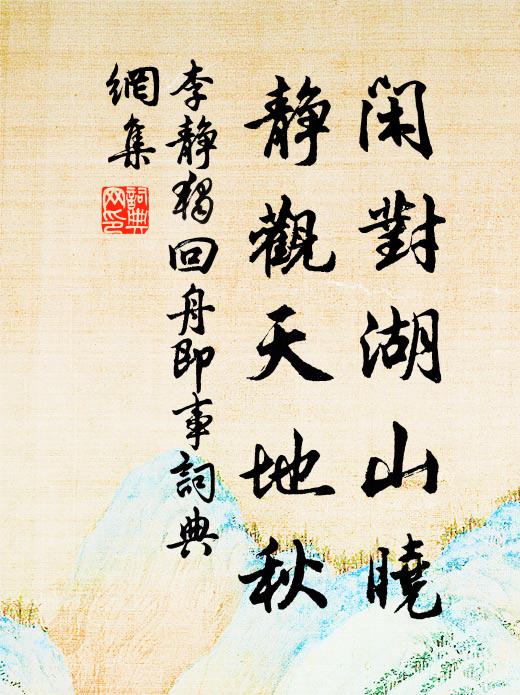 閑對湖山曉
靜觀天地秋
李靜獨回舟即事詞典
網集
詞典網印